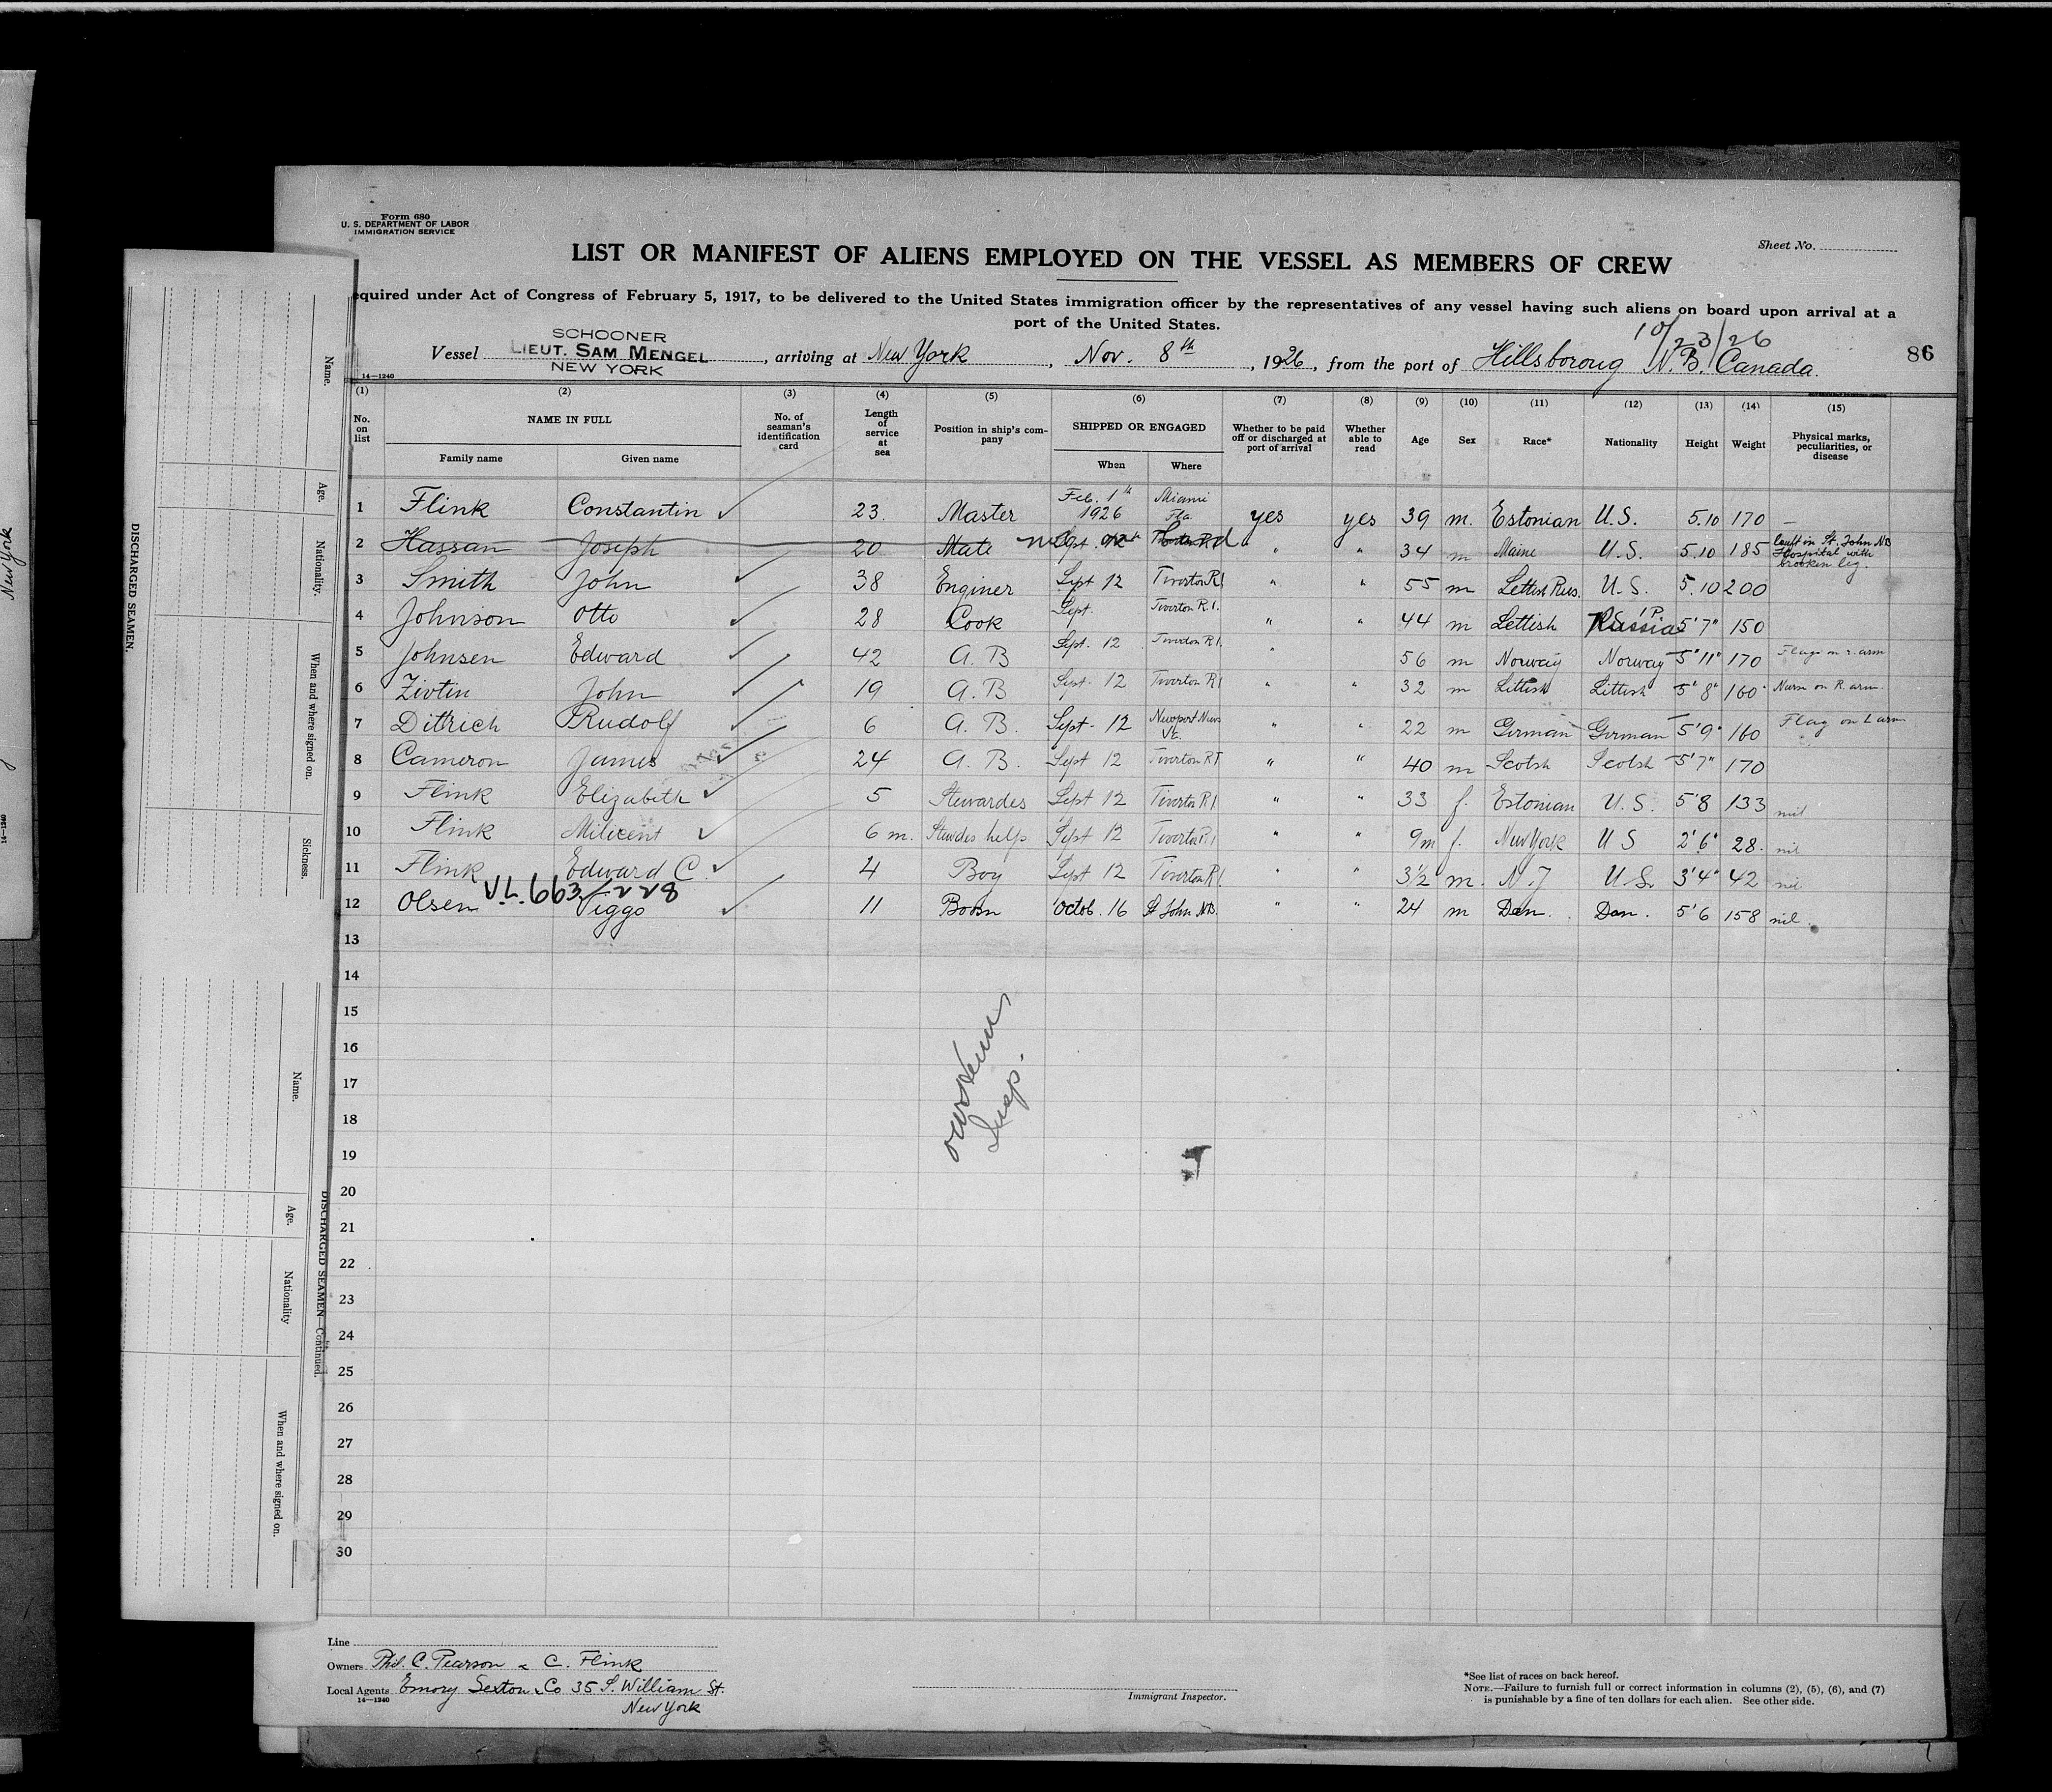 Form 680
U. S. DEPARTMENT OF LABOR
IMMIGRATION SERVICE
Sheet No.
LIST OR MANIFEST OF ALIENS EMPLOYED ON THE VESSEL AS MEMBERS OF CREW
equired under Act of Congress of February 5, 1917, to be delivered to the United States immigration officer by the representatives of any vessel having such aliens on board upon arrival at a
port of the United States.
10/23/26
SCHOONER
Vessel LIEUT. SAM MENGEL, arriving at New York, Nov. 8th, 1926, from the port of Hillsboroug N.B. Canada.
NEW YORK
86
14—1240
(1) (2) (3) (4) (5) (6) (7) (8) (9) (10) (11) (12) (13) (14) (15)
No. on list NAME IN FULL Family name Given name No. of seaman's identification card Length of service at sea Position in ship's company SHIPPED OR ENGAGED When Where Whether to be paid off or discharged at port of arrival Whether able to read Age Sex Race* Nationality Height Weight Physical marks, peculiarities, or disease
1 Flink Constantin 23. Master Feb. 1st 1926 Miami Fla. yes yes 39 m. Estonian U.S. 5.10 170 —
2 Hassan Joseph 20 Mate Sept. " " 34 m Maine U.S. 5.10 185 Left in St. John NB Hospital with broken leg.
3 Smith John 38 Enginer Sept 12 Tiverton R.I. " " 55 m Lettish Rus. U.S. 5.10 200
4 Johnson Otto 28 Cook Sept. Tiverton R.I. " " 44 m Lettish Russia 5'7" 150
5 Johnsen Edward 42 A.B Sept. 12 Tiverton R.I. " 56 m Norway Norway 5'11" 170 Flags on r. arm
6 Zivtin John 19 A.B Sept. 12 Tiverton R.I " " 32 m Littish Littish 5'8" 160 on R. arm.
7 Dittrich Rudolf 6 A.B. Sept. 12 Newport News Va. " " 22 m German German 5'9" 160 Flag on L arm
8 Cameron James 24 A.B. Sept 12 Tiverton RI " " 40 m Scotsh Scotsh 5'7" 170
9 Flink Elizabeth 5 Stewardes Sept 12 Tiverton R.I. " " 33 f. Estonian U.S. 5'8 133 nil
10 Flink Milicent 6 m. Stewdes help Sept 12 Tiverton R.I " " 9m f. New York U S 2'6" 28. nil
11 Flink Edward C. 4 Boy Sept 12 Tiverton R.I. " " 3½ m. N.J U.S. 3'4" 42 nil
V.L. 663/228
12 Olsen Viggo 11 Bosn Octob. 16 St John N.B. " " 24 m Dan. Dan. 5'6 158 nil.
13
14
15
16
17
18
19
20
21
22
23
24
25
26
27
28
29
30
Insp.
Line
Owners Phil. C. Pearson & C. Flink
Local Agents Emory Sexton & Co 35 S. William St.
14—1240
New York
Immigrant Inspector.
*See list of races on back hereof.
NOTE.—Failure to furnish full or correct information in columns (2), (5), (6), and (7)
is punishable by a fine of ten dollars for each alien. See other side.
DISCHARGED SEAMEN.
Name.
Age.
Nationality.
When and where signed on.
Sickness.
DISCHARGED SEAMEN—Continued.
Name.
Age.
Nationality
When and where signed on.
New York
14—1240